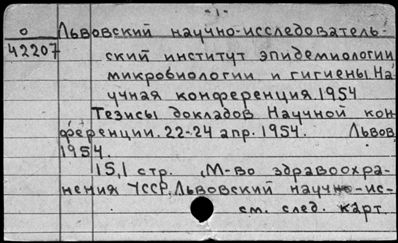 - 1 -
о Львовский научно-исследователь-
42207 ский институт эпидемиологии
микробиологии и гигиены. На-
учная конференция. 1954
Тезисы докладов Научной кон-
ференции. 22-24 апр. 1954. Львов
1954.
15,1 стр. (М-во здравоохра-
нения УССР, Львовский научно-ис-
см. след. карт.